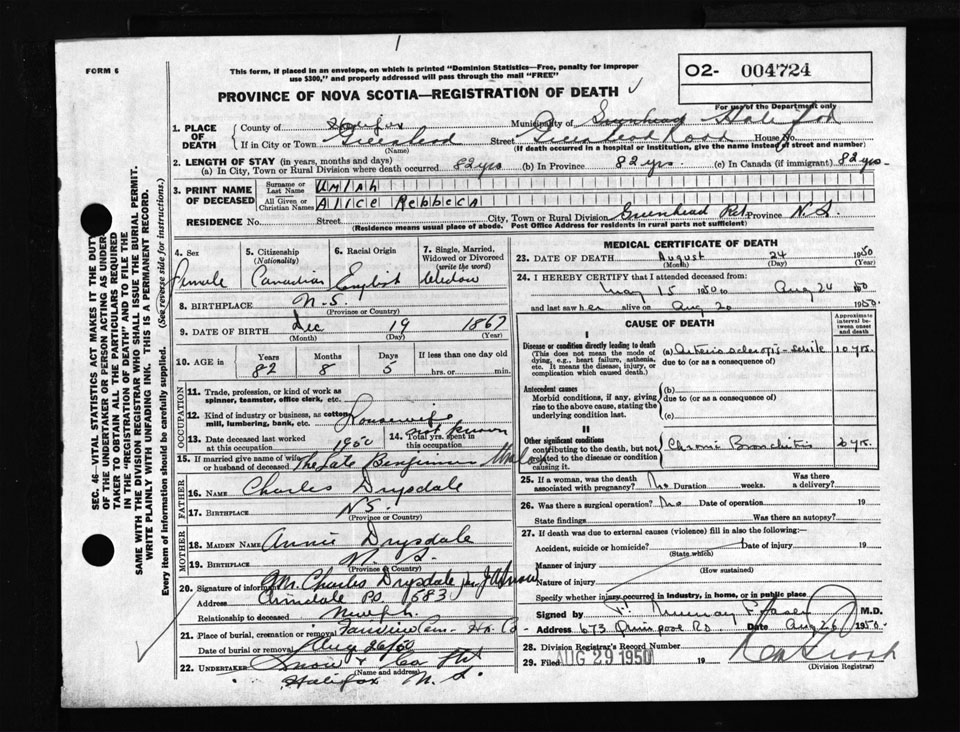 FORM 6
This form, if placed in an envelope, on which is printed "Dominion Statistics—Free, penalty for improper
use $300," and properly addressed will pass through the mail "FREE"
O2- 004724
For use of the Department only
PROVINCE OF NOVA SCOTIA—REGISTRATION OF DEATH
1. PLACE OF DEATH
County of Halifax Municipality of Halifax
If in City or Town Greenhead Street Greenhead Road House No.
(Name) (If death occurred in a hospital or institution, give the name instead of street and number)
2. LENGTH OF STAY (in years, months and days)
(a) In City, Town or Rural Division where death occurred 82 yrs (b) In Province 82 yrs. (c) In Canada (if immigrant) 82 yrs
3. PRINT NAME OF DECEASED
Surname or Last Name UMLAH
All Given or Christian Names ALICE REBBECA
RESIDENCE No. Street City, Town or Rural Division Greenhead Rd. Province N.S.
(Residence means usual place of abode. Post Office Address for residents in rural parts not sufficient)
4. Sex Female
5. Citizenship (Nationality) Canadian
6. Racial Origin English
7. Single, Married, Widowed or Divorced (write the word) Widow
8. BIRTHPLACE N.S.
(Province or Country)
9. DATE OF BIRTH Dec 19 1867
(Month) (Day) (Year)
10. AGE in Years Months Days If less than one day old
82 8 5 hrs. or min.
OCCUPATION
11. Trade, profession, or kind of work as spinner, teamster, office clerk, etc.
12. Kind of industry or business, as cotton mill, lumbering, bank, etc. Housewife
13. Date deceased last worked at this occupation 1950 14. Total yrs. spent in this occupation not known
15. If married give name of wife or husband of deceased The Late Benjiman Umlah
FATHER
16. NAME Charles Drysdale
17. BIRTHPLACE N.S.
(Province or Country)
MOTHER
18. MAIDEN NAME Annie Drysdale
19. BIRTHPLACE N.S.
(Province or Country)
20. Signature of informant Mr. Charles Drysdale per
Address Armdale P.O. 683
Relationship to deceased Neweph.
21. Place of burial, cremation or removal Fairview Cem. Hx. Co
Date of burial or removal Aug 26/50
22. UNDERTAKER Snow & Co Ltd
(Name and address)
Halifax N.S.
MEDICAL CERTIFICATE OF DEATH
23. DATE OF DEATH August 24 1950
(Month) (Day) (Year)
24. I HEREBY CERTIFY that I attended deceased from:
May 15 1950 to Aug 24 1950
and last saw her alive on Aug 20 1950.
CAUSE OF DEATH
Approximate interval between onset and death
I
Disease or condition directly leading to death
(This does not mean the mode of dying, e.g., heart failure, asthenia, etc. It means the disease, injury, or complication which caused death.)
(a) Arteriosclerosis - senile 10 yrs.
due to (or as a consequence of)
Antecedent causes
Morbid conditions, if any, giving rise to the above cause, stating the underlying condition last.
(b)
due to (or as a consequence of)
(c)
II
Other significant conditions
contributing to the death, but not related to the disease or condition causing it.
Chronic Bronchitis yrs.
25. If a woman, was the death associated with pregnancy? No Duration weeks. Was there a delivery?
26. Was there a surgical operation? No Date of operation 19
State findings Was there an autopsy?
27. If death was due to external causes (violence) fill in also the following:
Accident, suicide or homicide? Date of injury 19
(State which)
Manner of injury
(How sustained)
Nature of injury
Specify whether injury occurred in industry, in home, or in public place
Signed by Murray Fraser M.D.
Address 673 Quinpool Rd. Date Aug 26 1950.
28. Division Registrar's Record Number
29. Filed AUG 29 1950 19
(Division Registrar)
SEC. 46—VITAL STATISTICS ACT MAKES IT THE DUTY
OF THE UNDERTAKER OR PERSON ACTING AS UNDER-
TAKER TO OBTAIN ALL THE PARTICULARS REQUIRED
IN THE "REGISTRATION OF DEATH" AND TO FILE THE
SAME WITH THE DIVISION REGISTRAR WHO SHALL ISSUE THE BURIAL PERMIT.
WRITE PLAINLY WITH UNFADING INK. THIS IS A PERMANENT RECORD.
Every item of information should be carefully supplied. (See reverse side for instructions.)